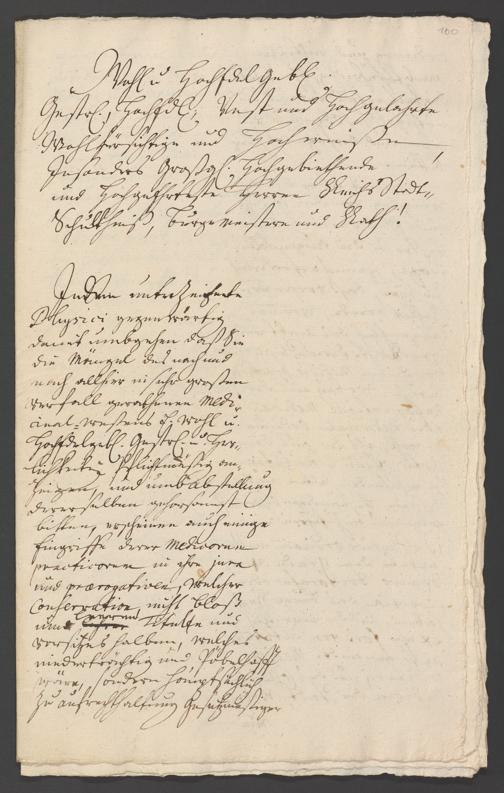 100
Wohl u. HochEdel Gebl.
Gestr., HochEdl., Vest und Hochgelahrte
Wohlfürsichtige und Hochweise,
Insonders Großgl. Hochgebiethende
und Hochgeehrteste Herren Reichs Stadt-
Schultheiß, Burgemeistere und Rath!
Indem unterzeichnete
Physici gegenwärtig
damit umbgehen daß Sie
die Mängel des nach und
nach allhier in sehr großen
verfall gerathenen Medi-
cinal-weßens Wohl u.
HochEdelgebl. Gestrl. u. Herr-
lichkeiten Pflichtmäsig an-
zeigen, und umb abstellung
dererselben gehorsamst
bitten, erscheinen auch einige
Eingriffe derer Medicorum
practicorum in ihre jura
und praerogativen, welcher
conservation, nicht bloß
umb leeren Tituln und
vorsizes halben, welches
niederträchtig und Pöbelhafft
wäre, sondern hauptsächlich
zu aufrechthaltung Gesezmäsiger